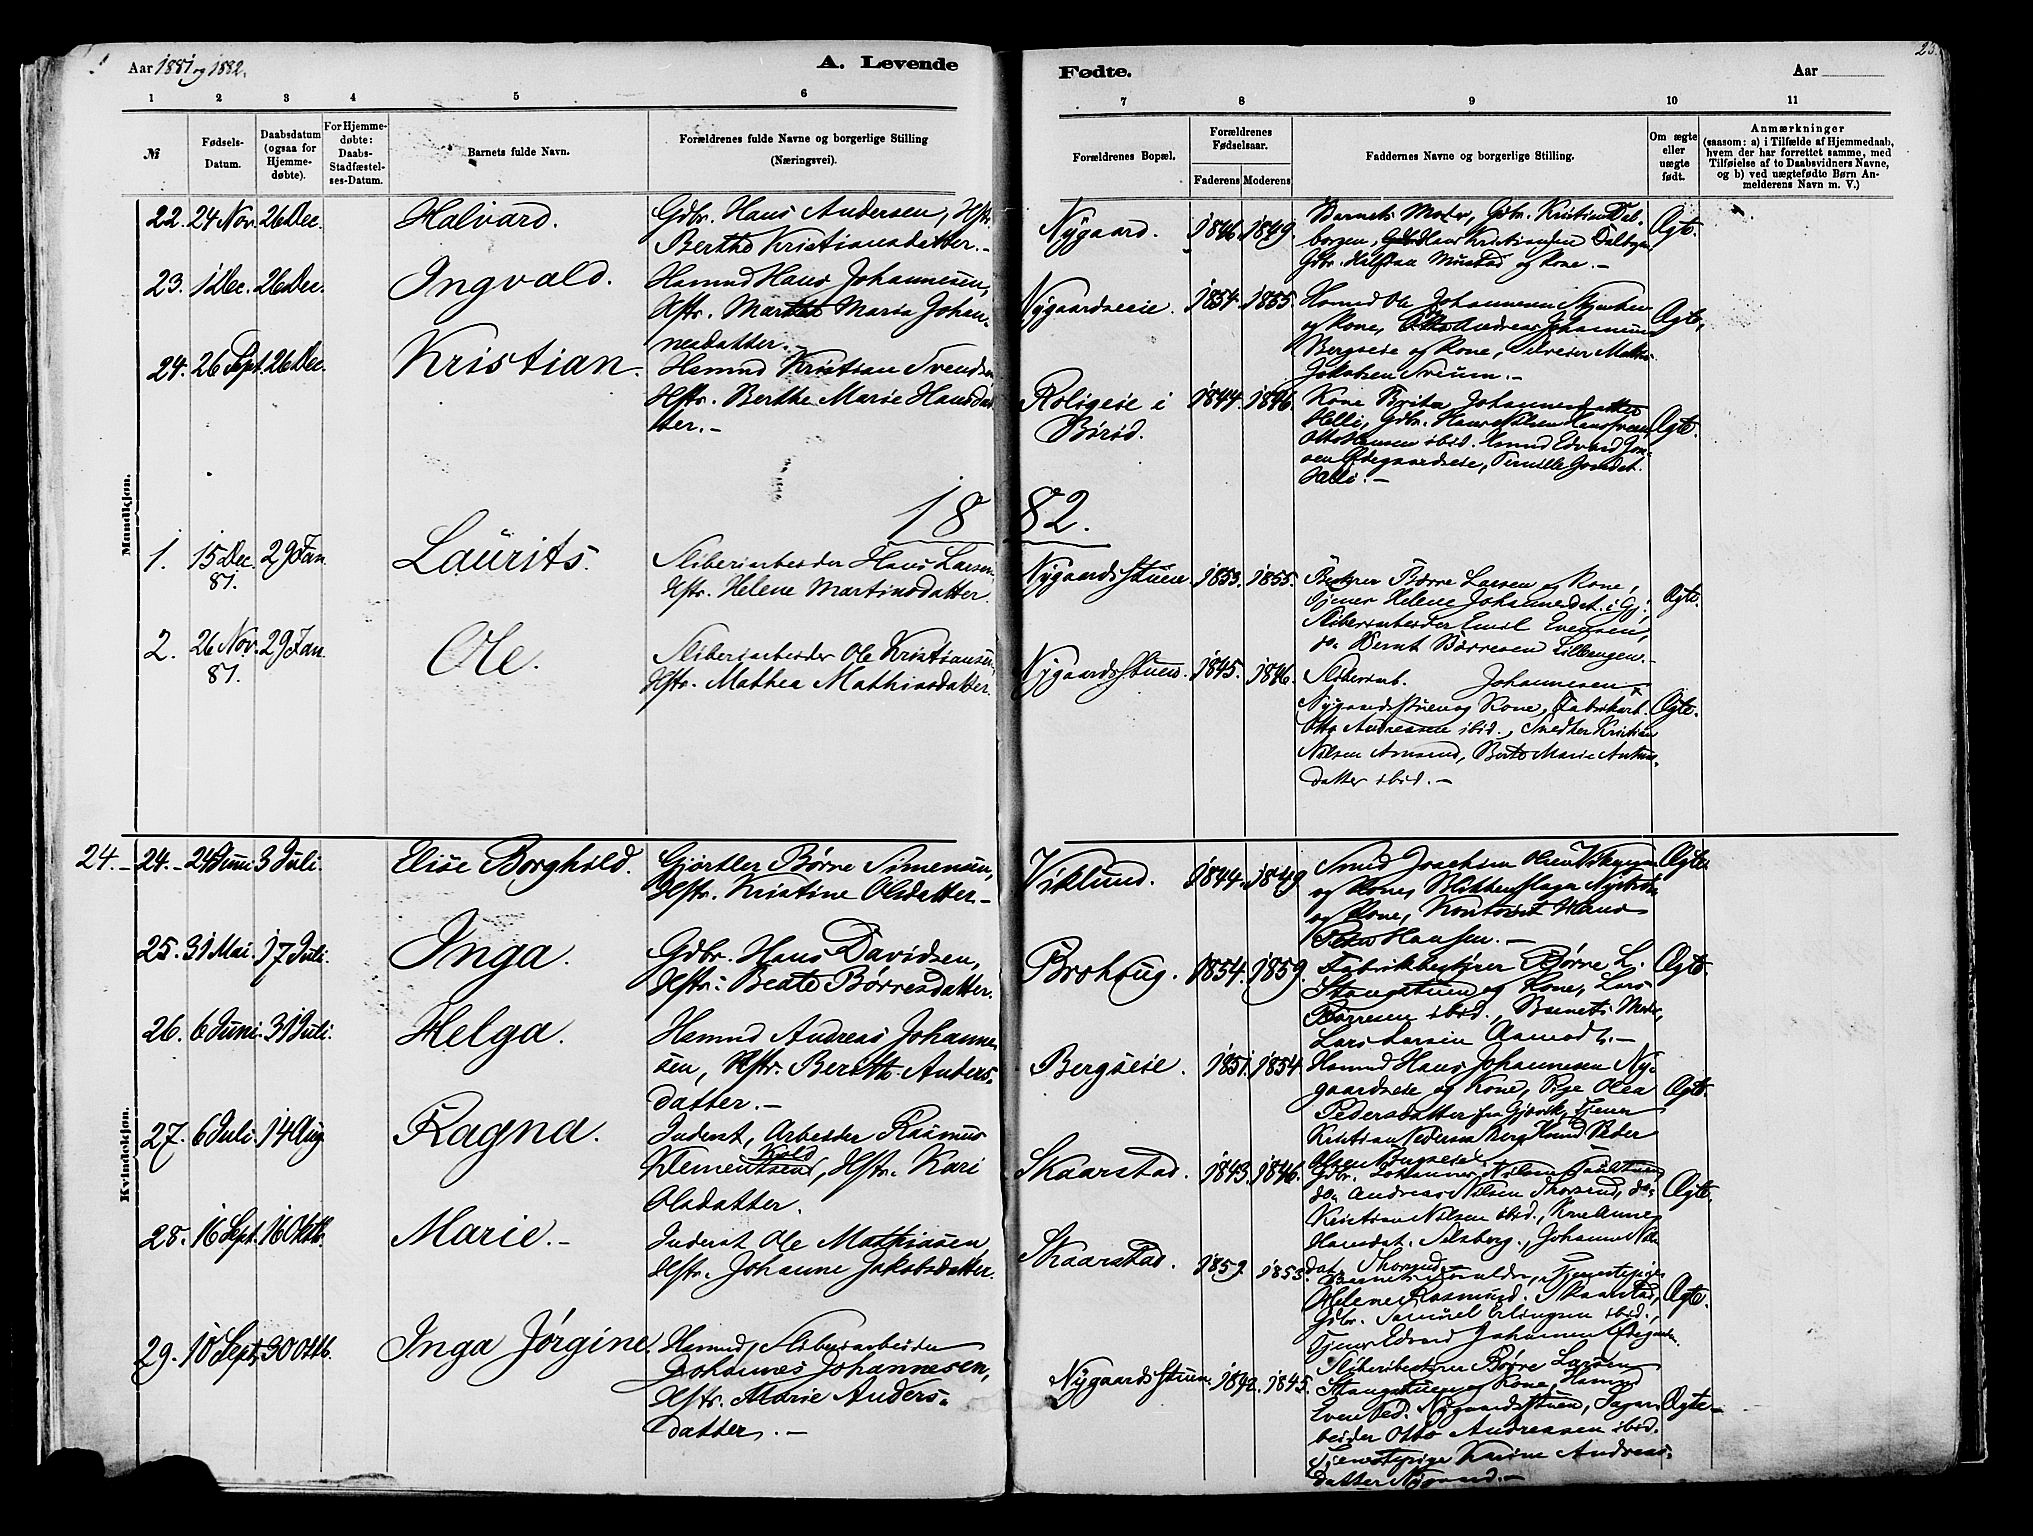 Aar 1881 og 1882.
A. Levende
Fødte.
Aar
23.
1 2 3 4 5 6 7 8 9 10 11
№
Fødsels-
Datum.
Daabsdatum
(ogsaa for
Hjemme-
døbte).
For Hjemme-
døbte:
Daabs-
Stadfæstel-
ses-Datum.
Barnets fulde Navn.
Forældrenes fulde Navne og borgerlige Stilling
(Næringsvei).
Forældrenes Bopæl.
Forældrenes
Fødselsaar.
Faderens Moderens
Faddernes Navne og borgerlige Stilling.
Om ægte
eller
uægte
født.
Anmærkninger
(saasom: a) i Tilfælde af Hjemmedaab,
hvem der har forrettet samme, med
Tilføielse af to Daabsvidners Navne,
og b) ved uægtefødte Børn An-
melderens Navn m. V.)
Mandkjøn.
22. 24 Nov. 26 Dec. Halvard.
Gdbr. Hans Andersen, Hstr.
Berthe Kristiansdatter.-
Nygaard. 1846. 1849.
Barnets Moder, Gdbr. Kristian Dal-
borgen, Hans Kristiansen Dalborgen
Gdbr. Halfdan Mustad og Kone.-
Ægte.
23. 1 Dec. 26 Dec. Ingvald.
Hsmnd Hans Johannesen,
Hstr. Marthe Maria Johan-
nesdatter.-
Nygaardseie. 1854. 1855.
Hsmnd Ole Johannesen
og Kone, Andreas Johannesen
Bergseie og Kone,
Jakobsen Sveum.-
Ægte.
24. 26 Sept. 26 Dec. Kristian.
Hsmnd Kristian Svendsen
Hstr. Berthe Marie Hansdat-
ter.-
Roligeie i
Biriid.
1844. 1846.
Kone Brita Johannesdatter
Helli, Gdbr. Hans Nilsen
Otto Hansen ibid. Hsmnd Edvard Jon-
sen Ødegaardseie, Pernille Jonsdat.
Helli.-
Ægte.
1882.
1. 15 Dec. 81. 29 Jan. Laurits.
Sliberiarbeider Hans Larsen
Hstr. Helene Martinsdatter.
Nygaardsstuen. 1853. 1855.
Bestyrer Børre Larsen og Kone,
Tjener Helene Johannesdat. i Gj.,
Sliberiarbeider Emil Evensen,
do. Bernt Børresen Lillengen.-
Ægte.
2. 26 Nov. 81. 29 Jan. Ole.
Sliberiarbeider Ole Kristiansen,
Hstr. Mathea Mathiasdatter.
Nygaardsstuen. 1845. 1846.
Sliberiarb. Johannesen
Nygaardsstuen og Kone, Fabrikarb.
Otto Andreasen ibid., Snedker Kristian
Nilsen Aonsrud, Berte Marie Antons-
datter ibid.-
Ægte.
Kvindekjøn.
24.- 24.- 24 Juni 3 Juli. Elise Borghild.
Gjørtler Børre Simensen,
Hstr. Kristine Olsdatter.-
Viklund. 1844. 1849
Smed Joachim Olsen
og Kone, Blikkenslager
og Kone, Kontorist Hans
Peter Hansen.-
Ægte
25. 31 Mai. 17 Juli. Inga.
Gdbr. Hans Davidsen,
Hstr. Beate Børresdatter.
Brohoug. 1854. 1859.
Fabrikbestyrer Børre L.
Stangstuen og Kone, Lars
Børresen ibid., Barnets Moder,
Lars Larsen Aamodt.-
Ægte.
26. 6 Juni. 31 Juli. Helga.
Hsmnd Andreas Johanne-
sen, Hstr. Berethe Anders-
datter.-
Bergseie. 1851. 1854
Hsmnd Hans Johannesen Ny-
gaardseie og Kone, Pige Olea
Pedersdatter fra Gjøvik, Tjener
Kristian Pedersen Berg, Hsmnd Peder
Olsen Bergseie.
Ægte.
27. 6 Juli. 14 Aug. Ragna.
Inderst, Arbeider Rasmus
Kold
Klementsen, Hstr. Kari
Olsdatter.
Skaarstad. 1843. 1846.
Gdbr. Johannes Nilsen
do. Andreas Nilsen Thorsrud, do.
Kristian Nilsen ibid., Kone Anne
Hansdat. Silsberg., Johanne Nils-
dat. Thorsrud.-
Ægte.
28. 16 Sept. 16 Oktb. Marie.-
Inderst Ole Mathiasen
Hstr. Johanne Jakobsdatter.
Skaarstad. 1859. 1853.
Barnets Forældre, Tjenestepige
Helene Rasmusd. Skaarstad,
Gdbr. Samuel Erlingsen ibid.,
Tjener Edvard Johannesen Ødegaarden.
Ægte.
29. 10 Sept. 30 Oktb. Inga Jörgine.
Hsmnd, Sliberiarbeider
Johannes Johannesen,
Hstr. Marie Anders-
datter.-
Nygaardsstuen. 1842. 1845.
Sliberibestyrer Børre Larsen
Stangstuen og Kone, Hsmnd
Even Ped. Nygaardsstuen, Sagar-
beider Otto Andreasen ibid.
Tjenestepige Karine Andreas-
datter Nygaard.-
Ægte.-